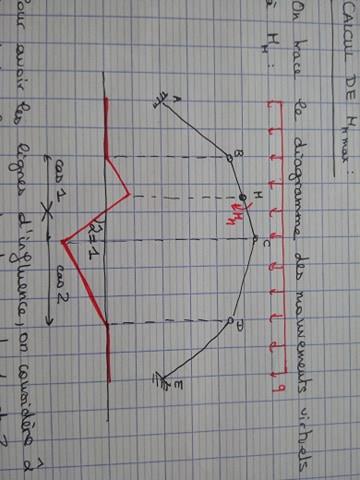 CALCUL DE M_H max :
On trace le diagramme des mouvements virtuels
à M_H :
q
A
B
H
M_H
C
D
E
α̂=1
cas 1
cas 2
Pour avoir les lignes d'influence, on considère à